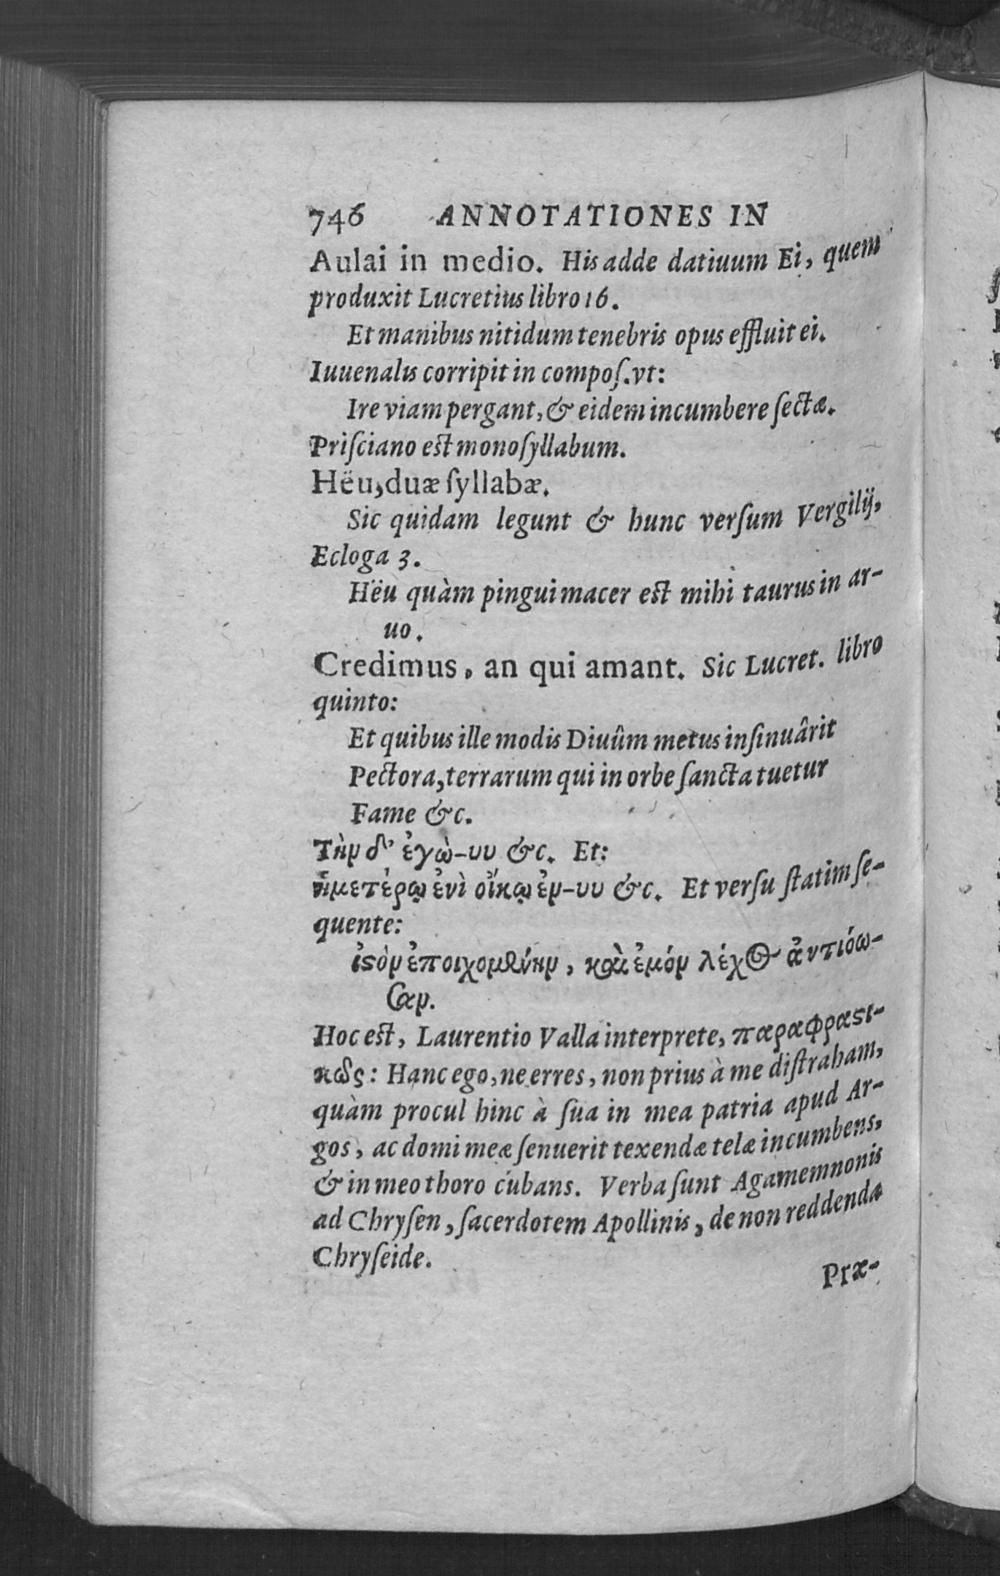 746 ANNOTATIONES IN
Aulai in medio. His adde datiuum Ei, quem
produxit Lucretius libro 16.
Et manibus nitidum tenebris opus effluit ei.
Iuuenalis corripit in compoſ. vt:
Ire viam pergant, & eidem incumbere ſectæ.
Priſciano est monoſyllabum.
Hëu, duæ ſyllabæ.
Sic quidam legunt & hunc verſum Vergilij,
Ecloga 3.
Hëu quàm pingui macer est mihi taurus in ar-
uo.
Credimus, an qui amant. Sic Lucret. libro
quinto:
Et quibus ille modis Diuûm metus inſinuârit
Pectora, terrarum qui in orbe ſancta tuetur
Fame &c.
Τὴν δ' ἐγὼ-υυ &c. Et:
ἡμετέρῳ ἐνὶ οἴκῳ ἐν-υυ &c. Et verſu ſtatim ſe-
quente:
ἱϛὸν ἐποιχομένην, καὶ ἐμόν λέχος ἀντιόω-
σαν.
Hoc est, Laurentio Valla interprete, παραφραϛι-
κῶς: Hanc ego, ne erres, non prius à me diſtraham,
quàm procul hinc à ſua in mea patria apud Ar-
gos, ac domi meæ ſenuerit texendæ telæ incumbens,
& in meo thoro cubans. Verba ſunt Agamemnonis
ad Chryſen, ſacerdotem Apollinis, de non reddenda
Chryſeide.
Præ-